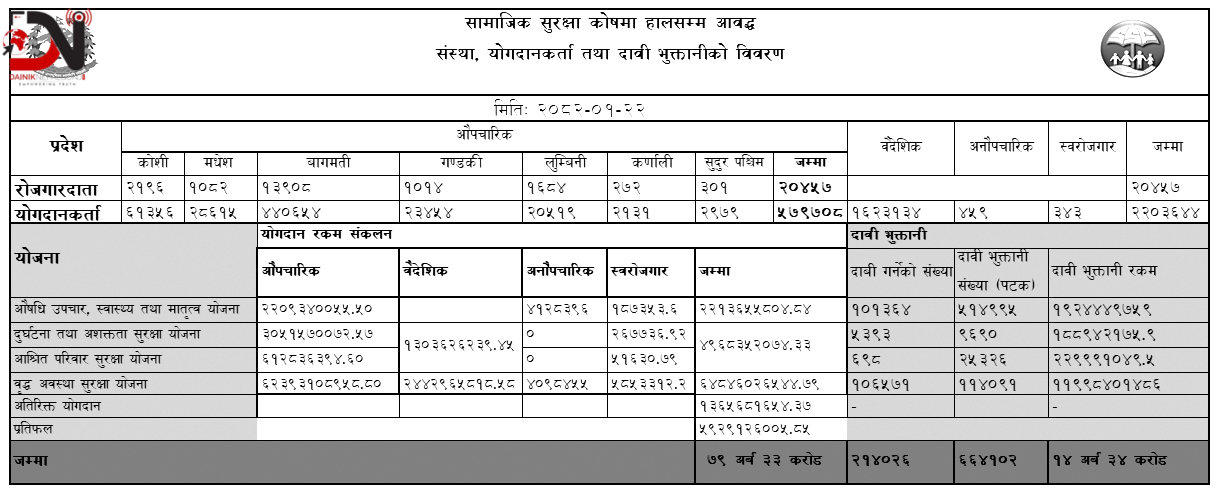 सामाजिक सुरक्षा कोषमा हालसम्म आवद्ध
संस्था, योगदानकर्ता तथा दावी भुक्तानीको विवरण
DAINIK NEPAL
EMPOWERING TRUTH
मितिः २०८२-०१-२२
प्रदेश औपचारिक वैदेशिक अनौपचारिक स्वरोजगार जम्मा
कोशी मधेश बागमती गण्डकी लुम्बिनी कर्णाली सुदुर पश्चिम जम्मा
रोजगारदाता २१९६ १०८२ १३९०८ १०१४ १६८४ २७२ ३०१ २०४५७ २०४५७
योगदानकर्ता ६१३५६ २८६१५ ४४०६५४ २३४५४ २०५१९ २१३१ २९७९ ५७९७०८ १६२३१३४ ४५९ ३४३ २२०३६४४
योजना योगदान रकम संकलन दावी भुक्तानी
औपचारिक वैदेशिक अनौपचारिक स्वरोजगार जम्मा दावी गर्नेको संख्या दावी भुक्तानी संख्या (पटक) दावी भुक्तानी रकम
औषधि उपचार, स्वास्थ्य तथा मातृत्व योजना २२०९३४००५५.५० ४१२८३९६ १८७३५३.६ २२१३६५५८०४.८४ १०१३६४ ५१४९९५ १९२४४४९७५९
दुर्घटना तथा अशक्तता सुरक्षा योजना ३०५१५७००७२.५७ १३०३६२६२३९.४५ ० २६७७३६.९२ ४९६८३५२०७४.३३ ५३९३ ९६९० १८८९४२१७५.९
आश्रित परिवार सुरक्षा योजना ६१२८३६३९४.६० ० ५१६३०.७९ ६९८ २५३२६ २२९९९१०४९.५
वृद्ध अवस्था सुरक्षा योजना ६२३९३१०८९५८.८० २४४२९६५८१८.५८ ४०९८४५५ ५८५३३१२.२ ६४८४६०२६५४४.७९ १०६५७१ ११४०९१ ११९९८४०१४८६
अतिरिक्त योगदान १३६५६८१६५४.३७ - -
प्रतिफल ५९२९१२६००५.८५
जम्मा ७९ अर्व ३३ करोड २१४०२६ ६६४१०२ १४ अर्व ३४ करोड